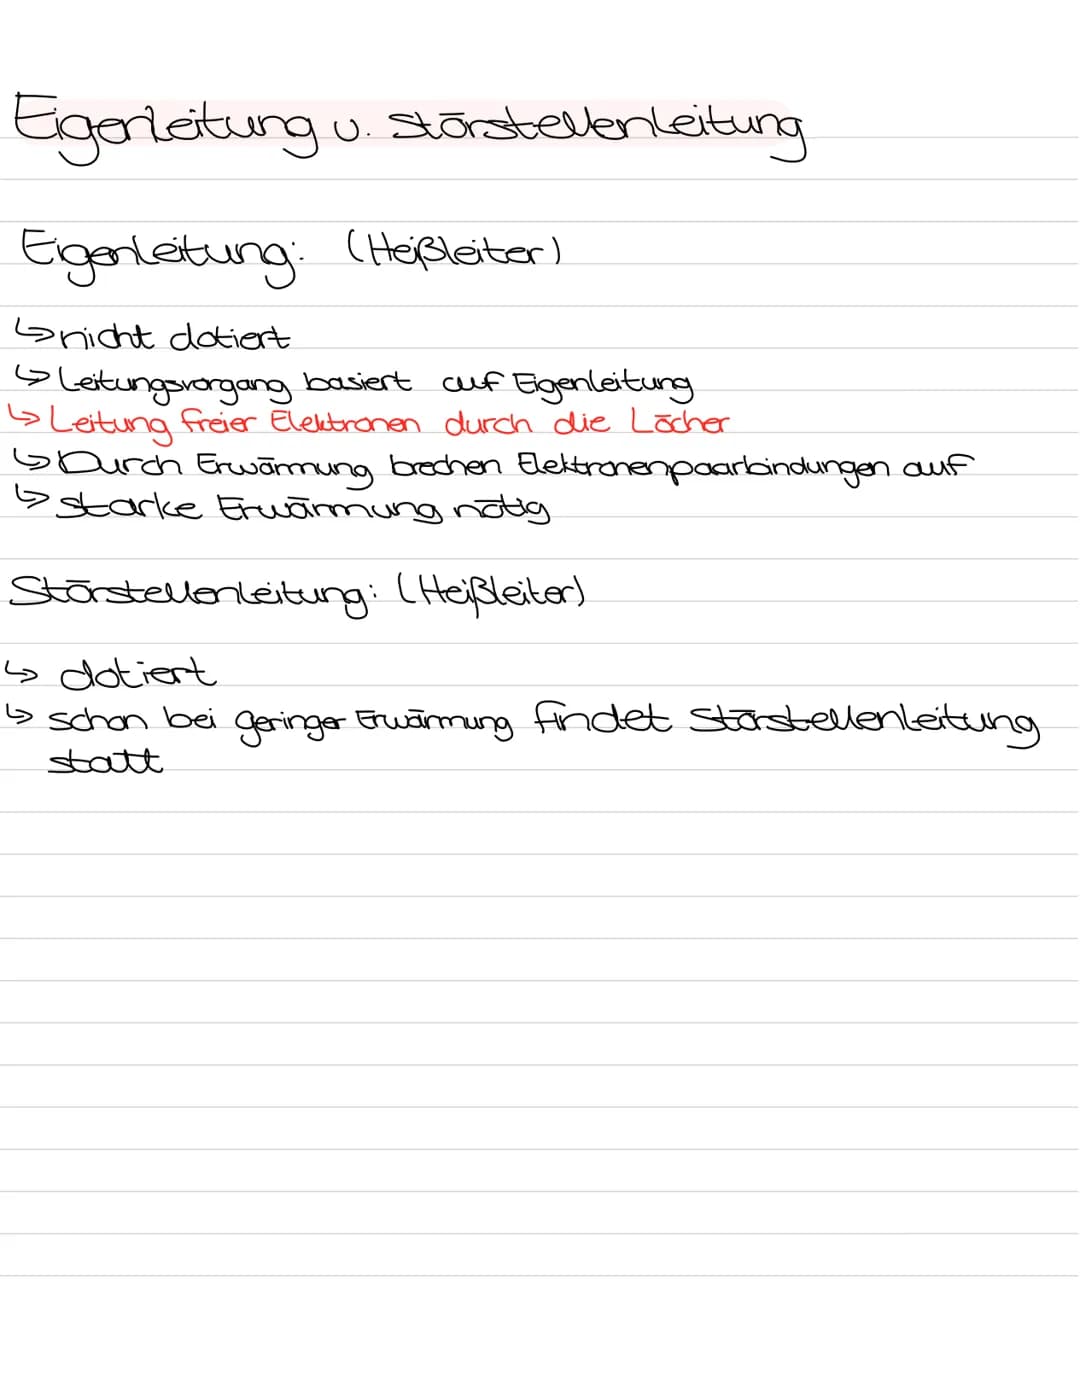 Eigenleitung u. Störstellenleitung
Eigenleitung: (Heißleiter)
↳ nicht dotiert
↳ Leitungsvorgang basiert auf Eigenleitung
↳ Leitung freier Elektronen durch die Löcher
↳ Durch Erwärmung brechen Elektronenpaarbindungen auf
↳ starke Erwärmung nötig
Störstellenleitung: (Heißleiter)
↳ dotiert
↳ schon bei geringer Erwärmung findet Störstellenleitung
statt